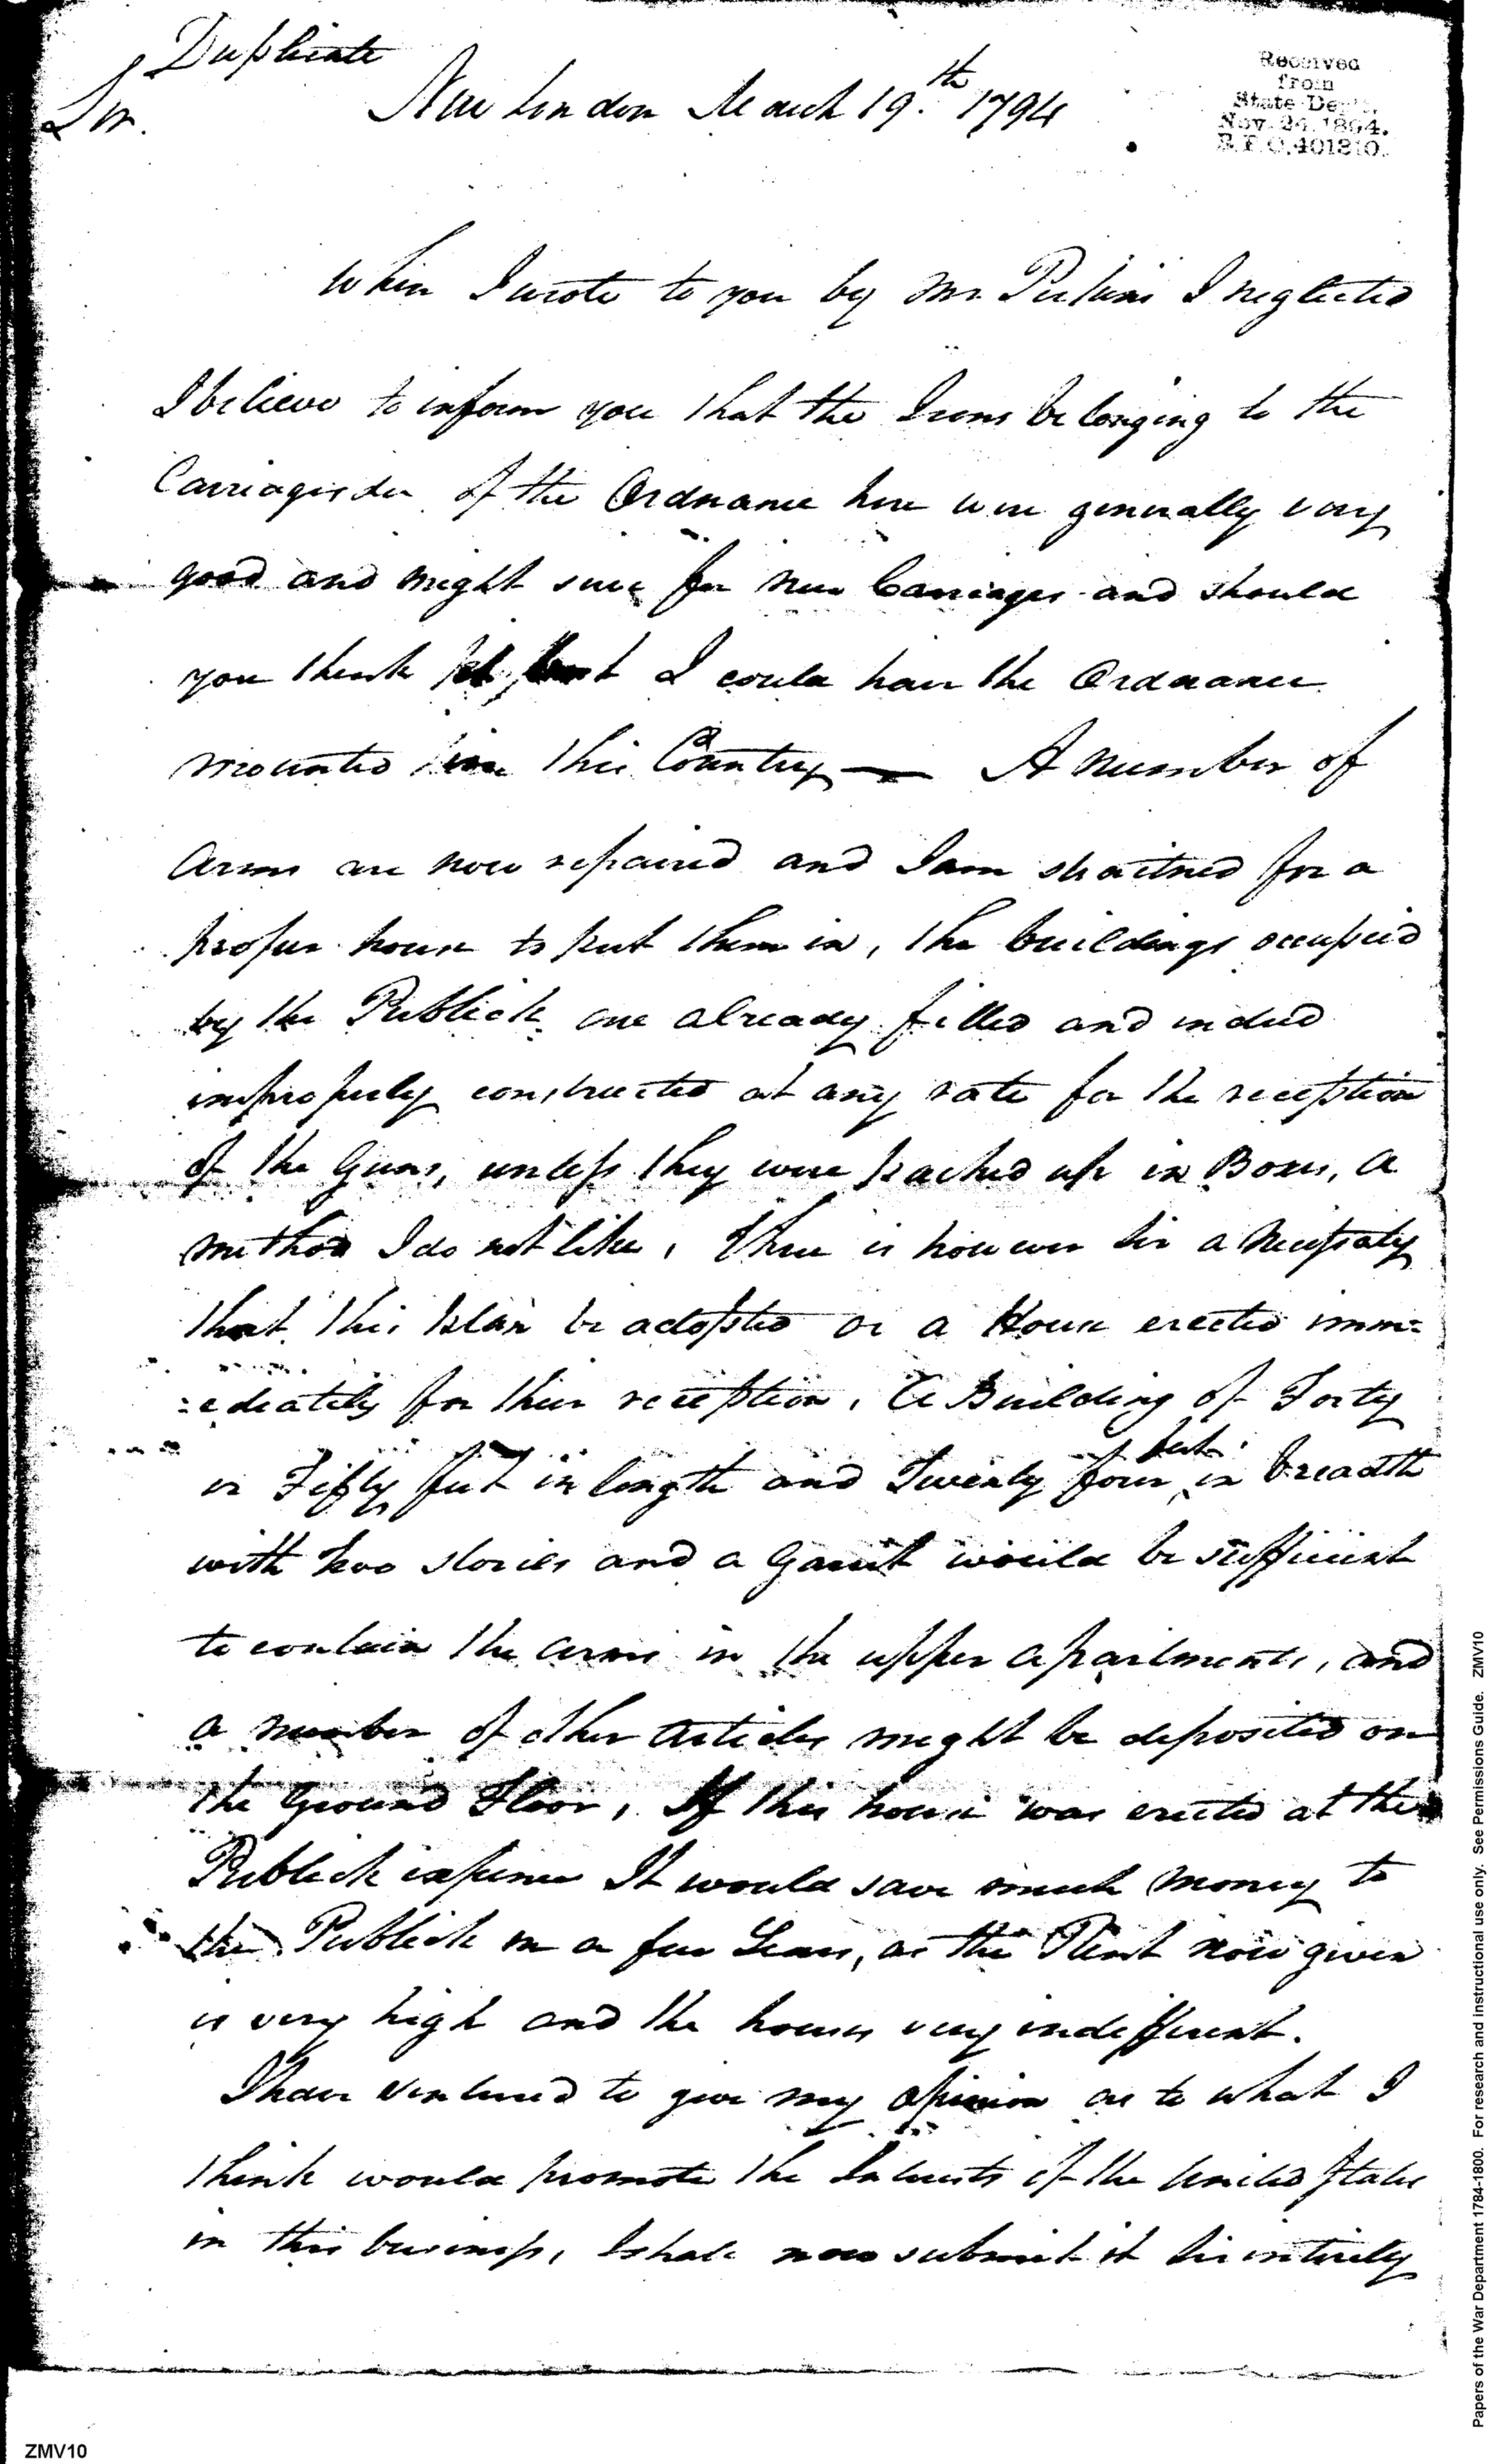 Duplicate
Sir.
New London March 19.th 1794
Received
from
State Dep't.
Nov. 24. 1894.
R.F.O. 401810.
When I wrote to you by Mr. Perkins I neglected
I believe to inform you that the Irons belonging to the
Carriages &c of the Ordnance here were generally very
good and might serve for new Carriages and should
you think it best I could have the Ordnance
mounted in this Country — A number of
Arms are now repaired and I am straitned for a
proper house to put them in, the buildings occupied
by the Publick are already filled and indeed
improperly constructed at any rate for the reception
of the Guns, unless they were packed up in Boxes, a
method I do not like, there is however Sir a necessaty
that this plan be adopted or a House erected imm=
=ediately for their reception, A Building of Forty
or Fifty feet in length and Twenty four feet in breadth
with two stories and a Garrit would be sufficient
to contain the arms in the upper apartments, and
a number of other Articles might be deposited on
the Ground Floor, If this house was erected at the
Publick expence It would save much money to
the Publick in a few Years, as the Rent now given
is very high and the houses very indifferent.
I have ventured to give my opinion as to what I
think would promote the Interests of the United States
in this business, I shall now submit it Sir intirely
Papers of the War Department 1784-1800. For research and instructional use only. See Permissions Guide. ZMV10
ZMV10